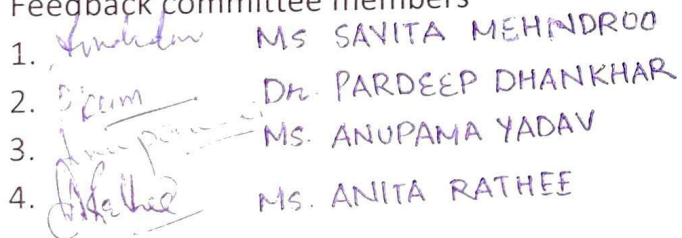 Feedback committee members
1. Ms SAVITA MEHNDROO
2. Dr. PARDEEP DHANKHAR
3. Ms. ANUPAMA YADAV
4. Ms. ANITA RATHEE